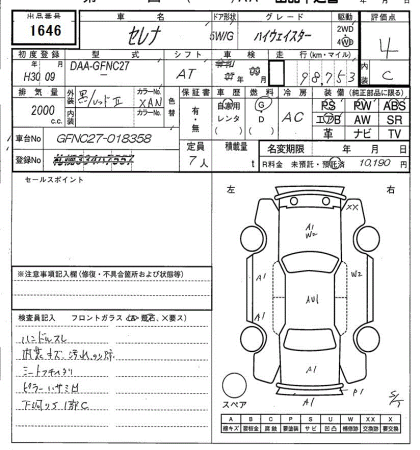 出品番号 車名 ドア形状 グレード 駆動 評価点
1646 セレナ 5W/G ハイウェイスター 2WD 4WD 4
初度登録 型式 シフト 車検 走行(km・マイル) 内装
H30年09月 DAA-GFNC27 AT 年 月 98,753 C
排気量 外装色 カラーNo. 色替 保証書 車歴 燃料 冷房 装備(純正部品に限る)
2000c.c. 黒/レッドⅡ XAN 有・無 自家用 レンタ G D AC PS PW ABS
内装 カラーNo. エアB AW SR
革 ナビ TV
車台No GFNC27-018358 定員 積載量 名変期限 年 月 日
登録No 7人 t R料金 未預託・預託済 10,190円
セールスポイント
左 右
XX
A1
W2
A1 W2
AU1
A1
A1
A1
P1
S/T
スペア
※注意事項記入欄(修復・不具合箇所および状態等)
検査員記入 フロントガラス
ハンドルスレ
内装キズ、汚れ
シートフキハクリ
ピラーハサミ
下廻りS1部C
A B C P S U W X XX
線キズ 要板金 腐食 要塗装 サビ 凹凸 補修跡 要交換 交換跡